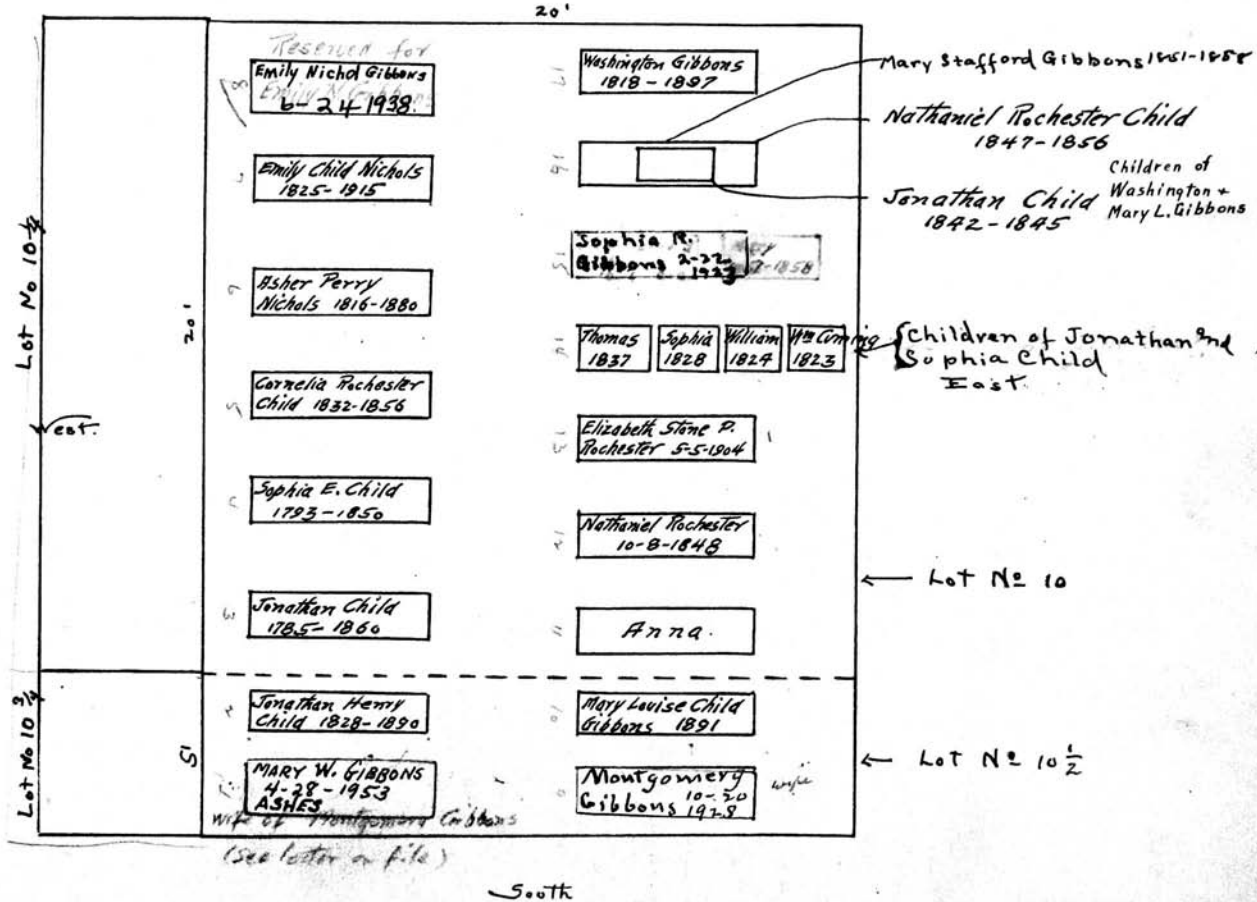 20'
Reserved for
Emily Nichol Gibbons
Emily N. Gibbons
6-24-1938.
8
Emily Child Nichols
1825-1915
7
Asher Perry
Nichols 1816-1880
6
Cornelia Rochester
Child 1832-1856
5
Sophia E. Child
1793-1850
4
Jonathan Child
1785-1860
3
Jonathan Henry
Child 1828-1890
2
MARY W. GIBBONS
4-28-1953
ASHES
wife of Montgomery Gibbons
(See letter on file)
Washington Gibbons
1818-1897
17
16
Sophia R.
Gibbons 2-22-
1923
-1858
15
Thomas
1837
Sophia
1828
William
1824
Wm Cuming
1823
14
Elizabeth Stone P.
Rochester 5-5-1904
13
Nathaniel Rochester
10-8-1848
12
Anna.
11
Mary Louise Child
Gibbons 1891
10
Montgomery
Gibbons 10-20
1928
9
wife
Mary Stafford Gibbons 1851-1858
Nathaniel Rochester Child
1847-1856
Jonathan Child
1842-1845
Children of
Washington +
Mary L. Gibbons
Children of Jonathan and
Sophia Child
East
← Lot No 10
← Lot No 10 1/2
Lot No 10 1/2
20'
West.
Lot No 10 3/4
5'
South